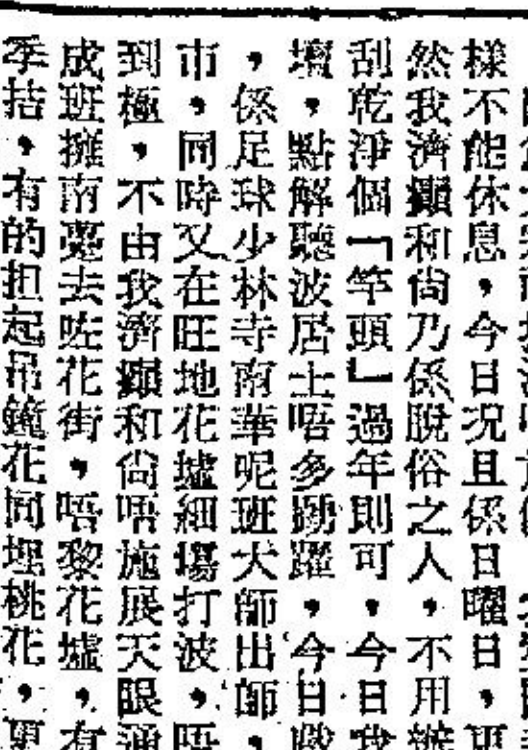 樣不能休息，今日況且係日曜日，更
然我濟顚和尙乃係脫俗之人，不用辦
刮乾淨個「竿頭」過年則可，今日我
壇，點解聽波居士唔多踴躍，今日戲
，係足球少林寺南華呢班大師出師，
市，同時又在旺地花墟細場打波，唔
到極，不由我濟顚和尙唔施展天眼通
成班擁南躉去咗花街，唔黎花墟，有
季拮，有的担起吊鐘花同埋桃花，更